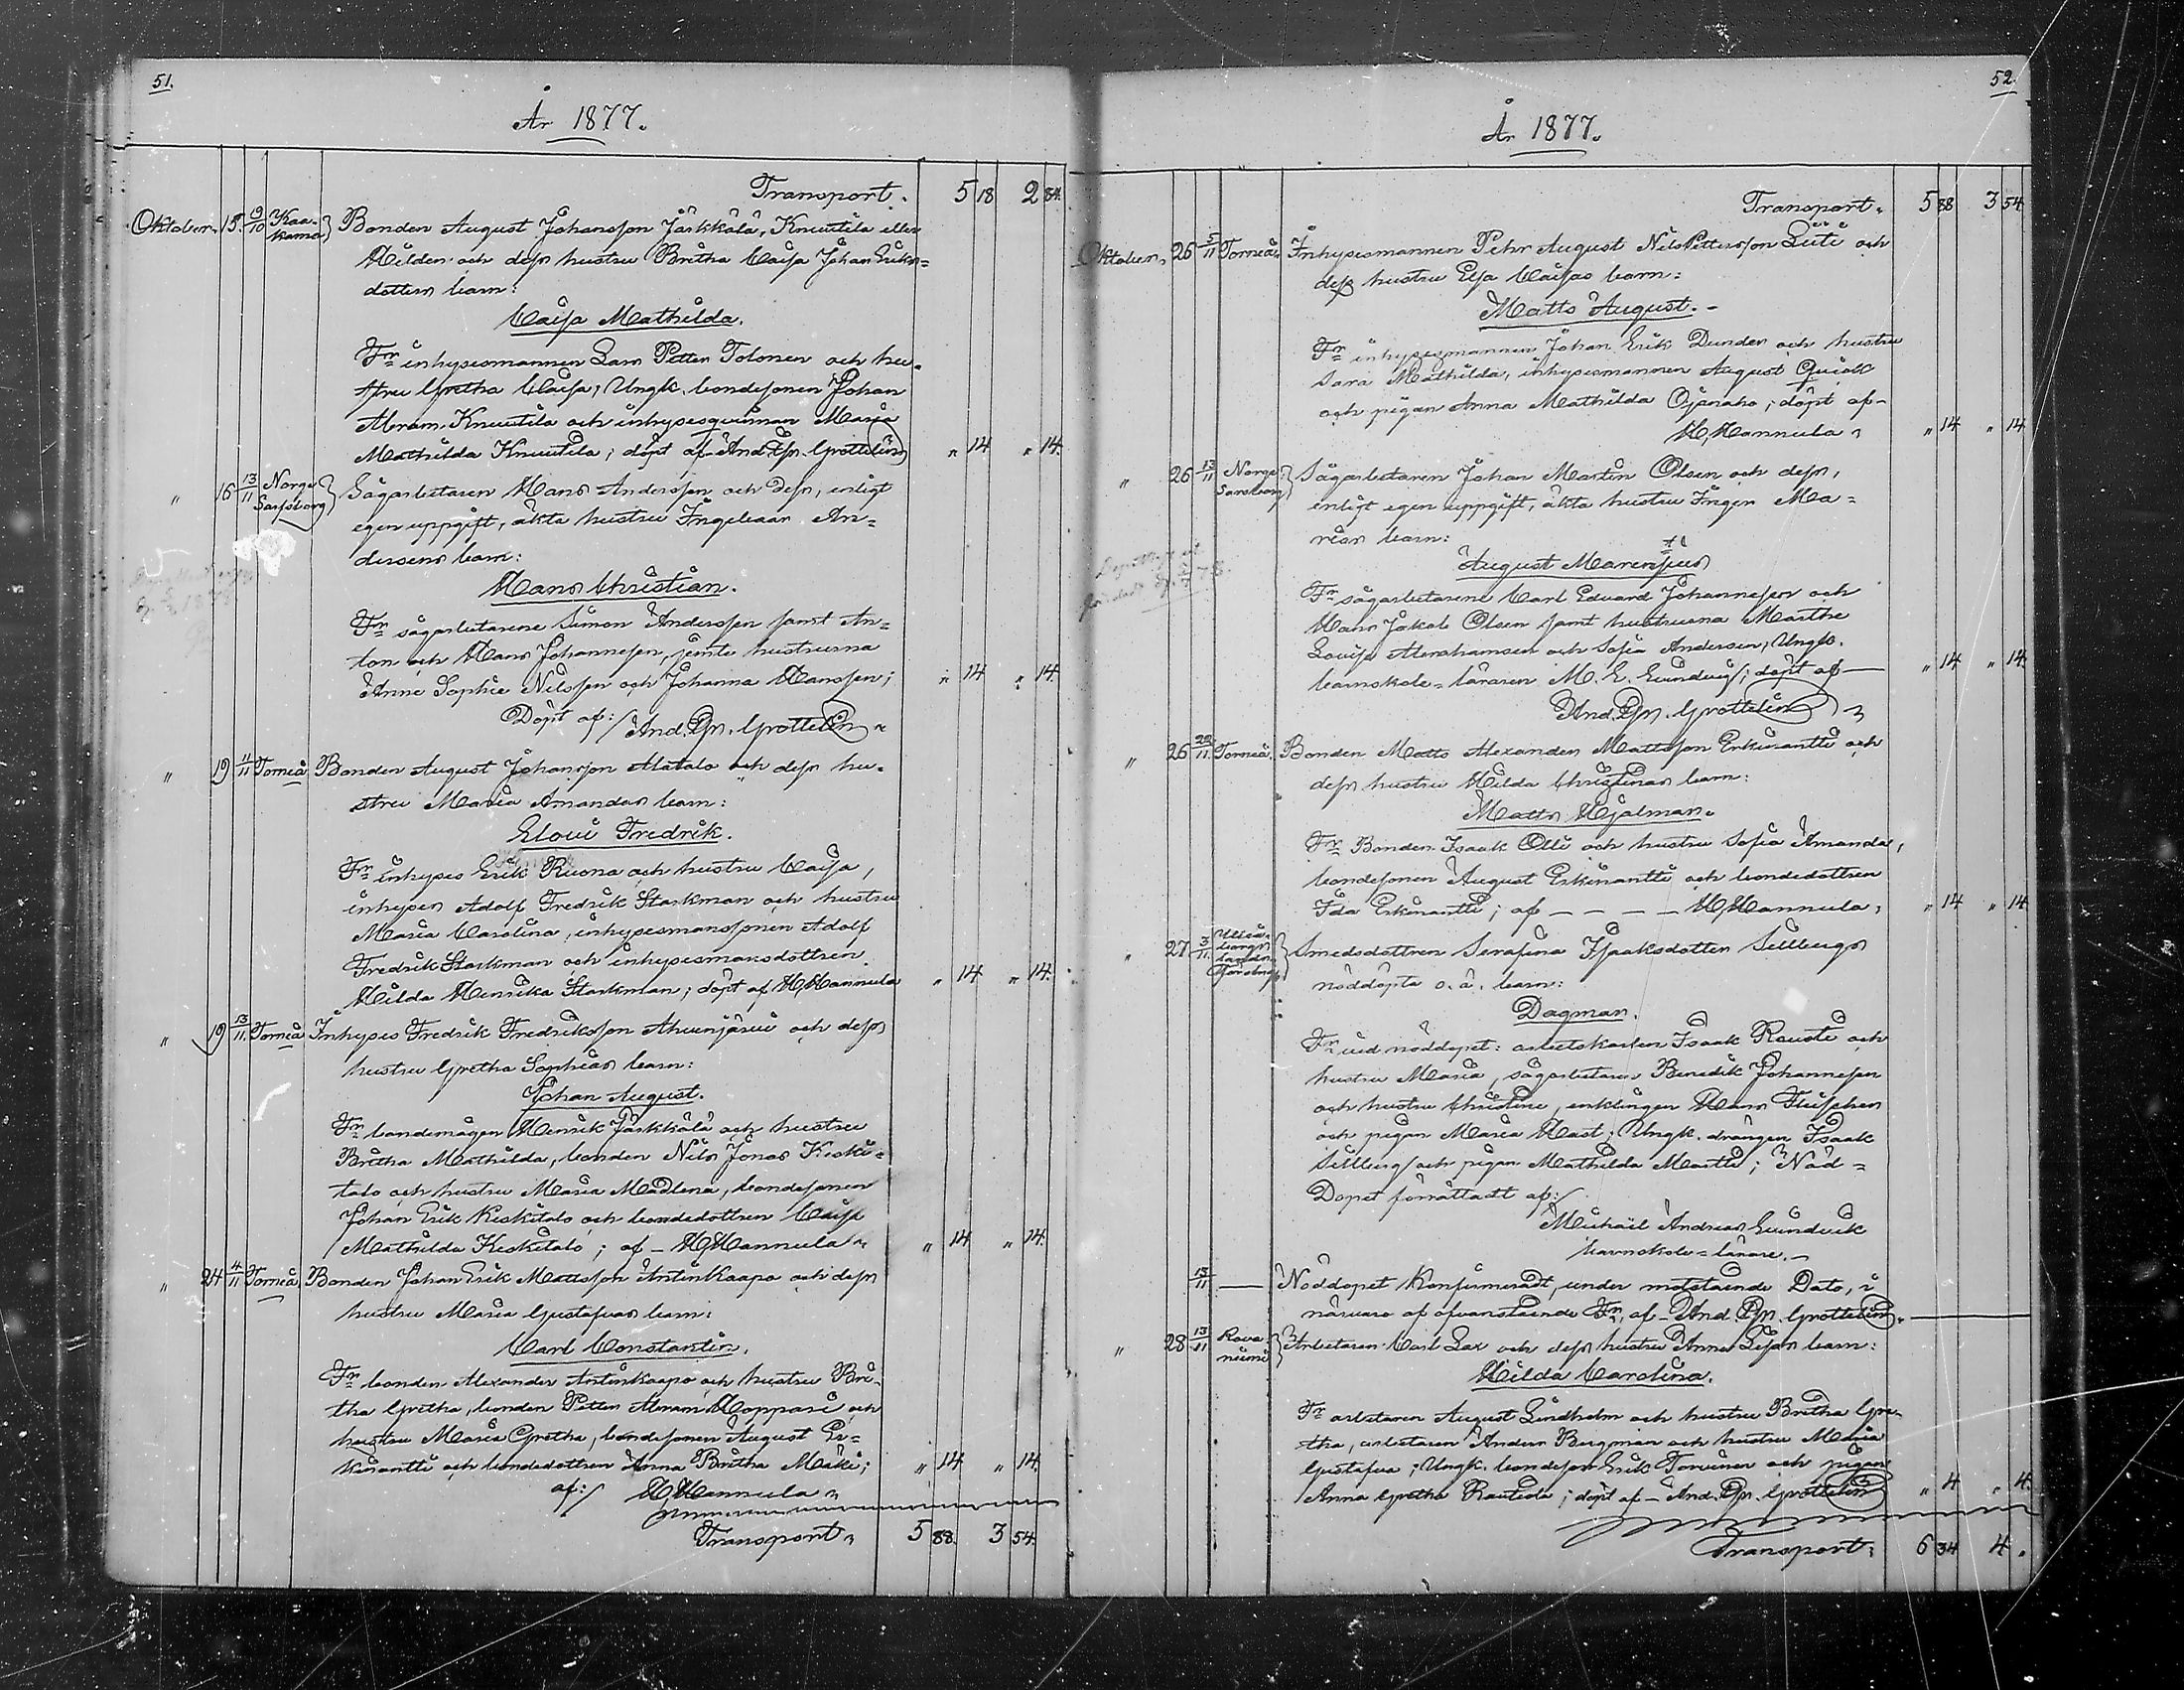 51.
År 1877.
Transport. 5 18 2 84.
Oktober. 15. 9/10 Kaakama } Bonden August Johansson Järkkälä, Knuutila eller
Hilden och dess hustru Britha Caisa Johan Eriks=
dotters barn:
Caisa Mathilda.
Fr inhysesmannen Lars Petter Tolonen och hu-
stru Gretha Caisa; Ungk. bondesonen Johan
Abram Knuutila och inhysesqvinnan Maria
Mathilda Knuutila; döpt af And. Gr. Grottelin „ 14 „ 14.
„ 16 13/11 Norge Sarpsborg } Sågarbetaren Hans Andersen och dess, enligt
egen uppgift, äkta hustru Ingeboar An=
dersens barn:
Hans Christian.
Fr sågarbetarene Simon Andersson samt An=
ton och Hans Johannesen, jemte hustrurna
Anne Sophie Nilssen och Johanna Hanssen; „ 14 „ 14.
Döpt af:/ And. Gr. Grottelin
„ 19 11/11 Torneå Bonden August Johansson Alatalo och dess hu-
stru Maria Amandas barn:
Elowi Fredrik.
Fr inhyses Erik Ruona och hustru Caisa,
inhyses Adolf Fredrik Starkman och hustru
Maria Carolina, inhysesmanssonen Adolf
Fredrik Starkman och inhysesmansdottren
Hilda Henrika Starkman; döpt af H. Hannula „ 14 „ 14.
„ 19 13/11 Torneå Inhyses Fredrik Fredriksson Ahvenjärvi och dess
hustru Gretha Sophias barn:
Johan August.
Fr bondemågen Henrik Järkkälä och hustru
Britha Mathilda, bonden Nils Jonas Keski=
talo och hustru Maria Madlena, bondesonen
Johan Erik Keskitalo och bondedottren Caisa
Mathilda Keskitalo; af – H. Hannula „ 14 „ 14.
„ 24 4/11 Torneå. Bonden Johan Erik Mattsson AntinKaapo och dess
hustru Maria Gustafvas barn:
Carl Constantin.
Fr bonden Alexander Antinkaapo och hustru Bri-
tha Gretha, bonden Petter Abram Hoppari och
hustru Maria Gretha, bondesonen August Er=
kinantti och bondedottren Anna Britha Mäki; „ 14 „ 14.
af:/ H. Hannula
Transport 5 88. 3 54.
52.
År 1877.
Transport. 5 88 3 54.
Oktober. 26 5/11 Torneå. Inhysesmannen Pehr August Nils Pettersson Liiti och
dess hustru Elsa Caisas barn:
Matts August.
Fr inhysesmannen Johan Erik Dunder och hustru
Sara Mathilda, inhysesmannen August Quick
och pigan Anna Mathilda Ojanaho; döpt af –
H. Hannula „ 14 „ 14
„ 26 13/11 Norge Sarsborg } Sågarbetaren Johan Martin Olsen och dess,
enligt egen uppgift, äkta hustru Inger Ma=
rias barn:
August
Fr sågarbetarene Carl Edvard Johannesen och
Hans Jakob Olsen samt hustrurna Marthe
Lovise Abrahamsen och Sofia Andersen, Ungk.
barnskole=läraren M. E. ; döpt af — „ 14 „ 14.
And. Gr. Grottelin
„ 26 22/11 Torneå. Bonden Matts Alexander Mattsson Erkinantti och
dess hustru Hilda Christinas barn:
Matts Hjalmar.
Fr Bonden Isaak Olli och hustru Sofia Amanda,
bondesonen August Erkinantti och bondedottren
Ida Erkinantti; af – – – – H. Hannula. „ 14 „ 14
„ 27 3/11. } Smedsdottren Serafina Isaaksdotter Sillbergs
nöddöpta o. ä. barn:
Dagmar.
Fr vid nöddopet: arbetskarlen Isaak Rousti och
hustru Maria, sågarbetaren Benedik Johannesen
och hustru Christine, enklingen Hans
och pigan Maria Mast; Ungk. drängen Isaak
Sillberg och pigan Mathilda Martti; Nöd=
Dopet förrättadt af:/
Michaël Andreas
barnskole=lärare.
13/11 — Nöddopet Konfirmeradt, under motstående Dato, i
närvaro af ofvanstående Fr, af – And. Gr. Grottelin.
„ 28 13/11 Rovaniemi } Arbetaren Carl Lax och dess hustru Anna Lisas barn:
Hilda Carolina.
Fr arbetaren August Lindholm och hustru Britha Gre-
tha, arbetaren Anders Bergman och hustru Maria
Gustafva; Ungk. bondeson Erik Torvinen och pigan
Anna Gretha Rautiola; döpt af – And. Gr. Grottelin „ 4 „ 4.
Transport. 6 34 4 „